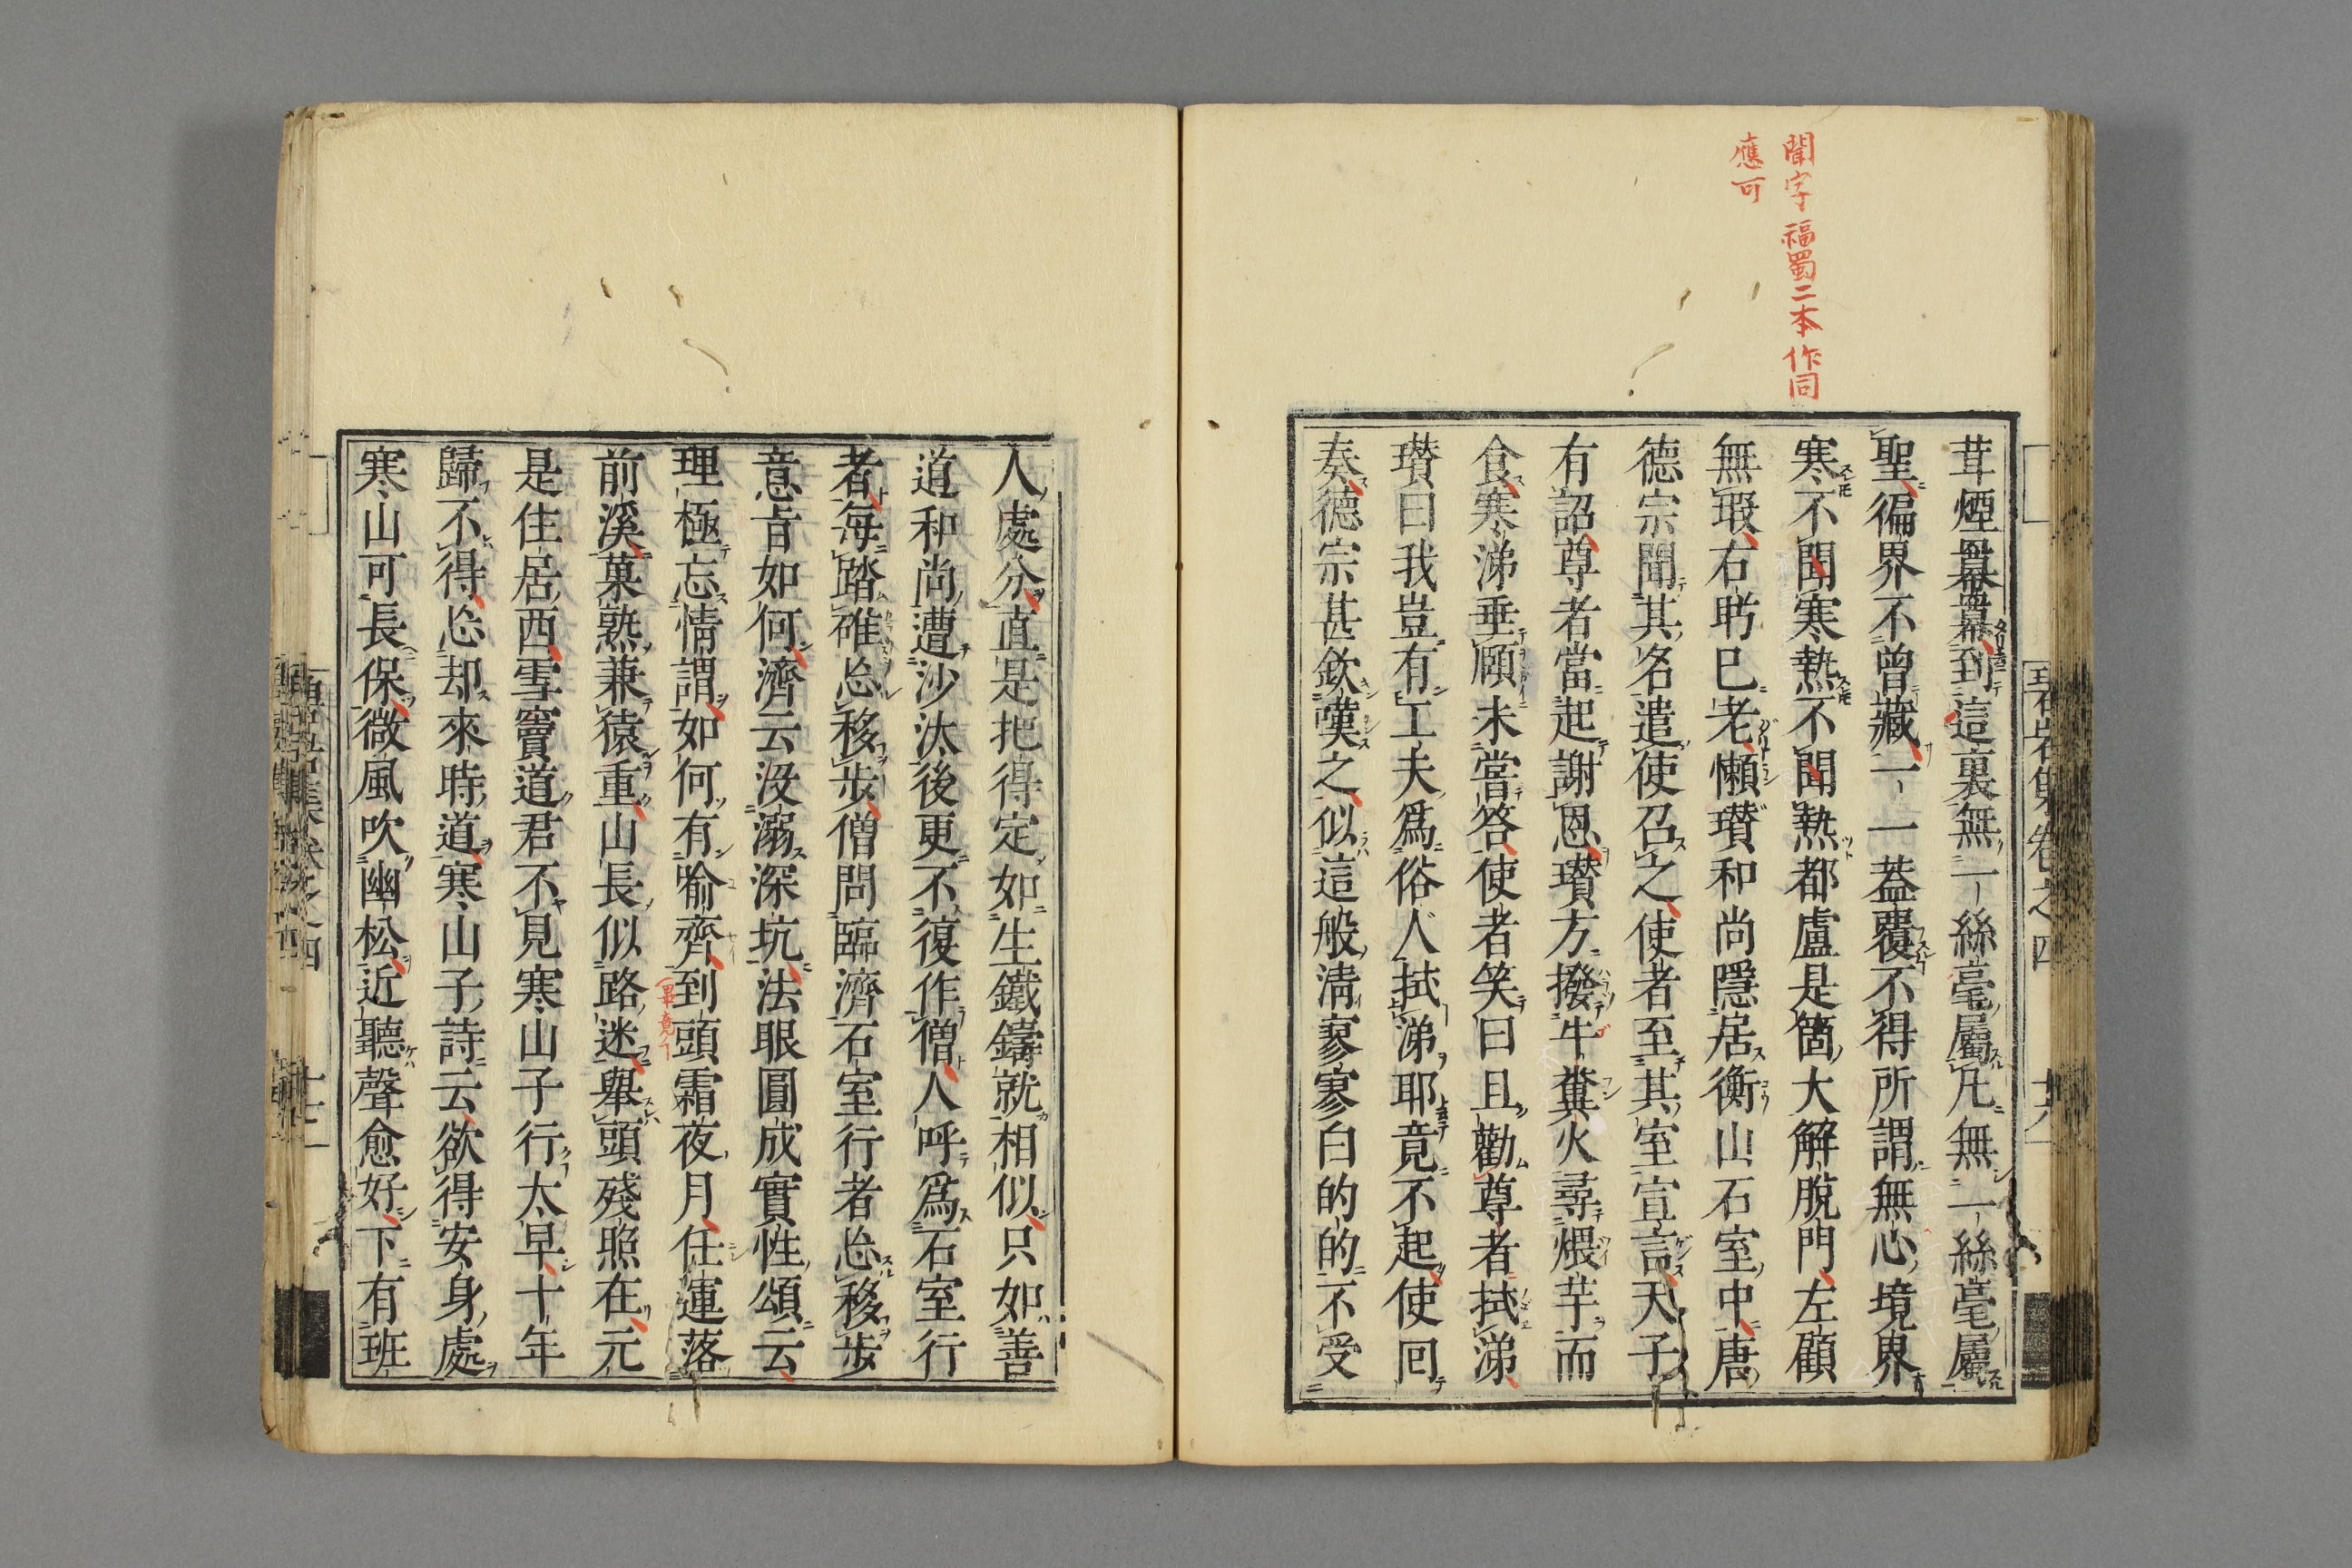 聞字福蜀二本作同
應可
茸煙羃羃到這裏無一絲毫屬凡無一絲毫屬
聖徧界不曾藏一一蓋覆不得所謂無心境界
寒不聞寒熱不聞熱都盧是箇大解脫門左顧
無瑕右眄已老懶瓚和尚隱居衡山石室中唐
德宗聞其名遣使召之使者至其室宣言天子
有詔尊者當起謝恩瓚方撥牛糞火尋煨芋而
食寒涕垂頤未甞答使者笑曰且勸尊者拭涕
瓚曰我豈有工夫爲俗人拭涕耶竟不起使回
奏德宗甚欽嘆之似這般淸寥寥白的的不受
人處分直是把得定如生鐵鑄就相似只如善
道和尚遭沙汰後更不復作僧人呼爲石室行
者每踏碓忘移步僧問臨濟石室行者忘移步
意旨如何濟云沒溺深坑法眼圓成實性頌云
理極忘情謂如何有喻齊到頭霜夜月任運落
畢竟
前溪菓熟兼猿重山長似路迷舉頭殘照在元
是住居西雪竇道君不見寒山子行太早十年
歸不得忘却來時道寒山子詩云欲得安身處
寒山可長保微風吹幽松近聽聲愈好下有班